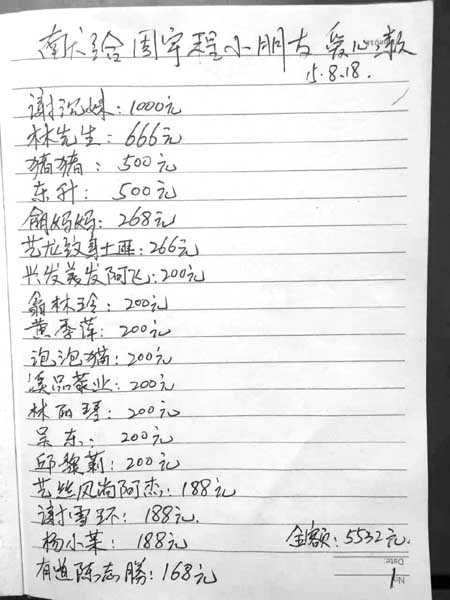 献给周宇程小朋友爱心款
15.8.18.
谢沉妹：1000元
林先生：666元
猪猪：500元
东升：500元
俞妈妈：268元
艺龙纹身士匪：266元
兴发美发阿飞：200元
翁林玲：200元
黄秀萍：200元
泡泡猫：200元
溪品茶业：200元
林丽琴：200元
吴东：200元
邱黎莉：200元
艺丝风尚阿杰：188元
谢雪环：188元.
杨小菜：188元 金额：5532元.
有道陈志勝：168元
Date:
No 1